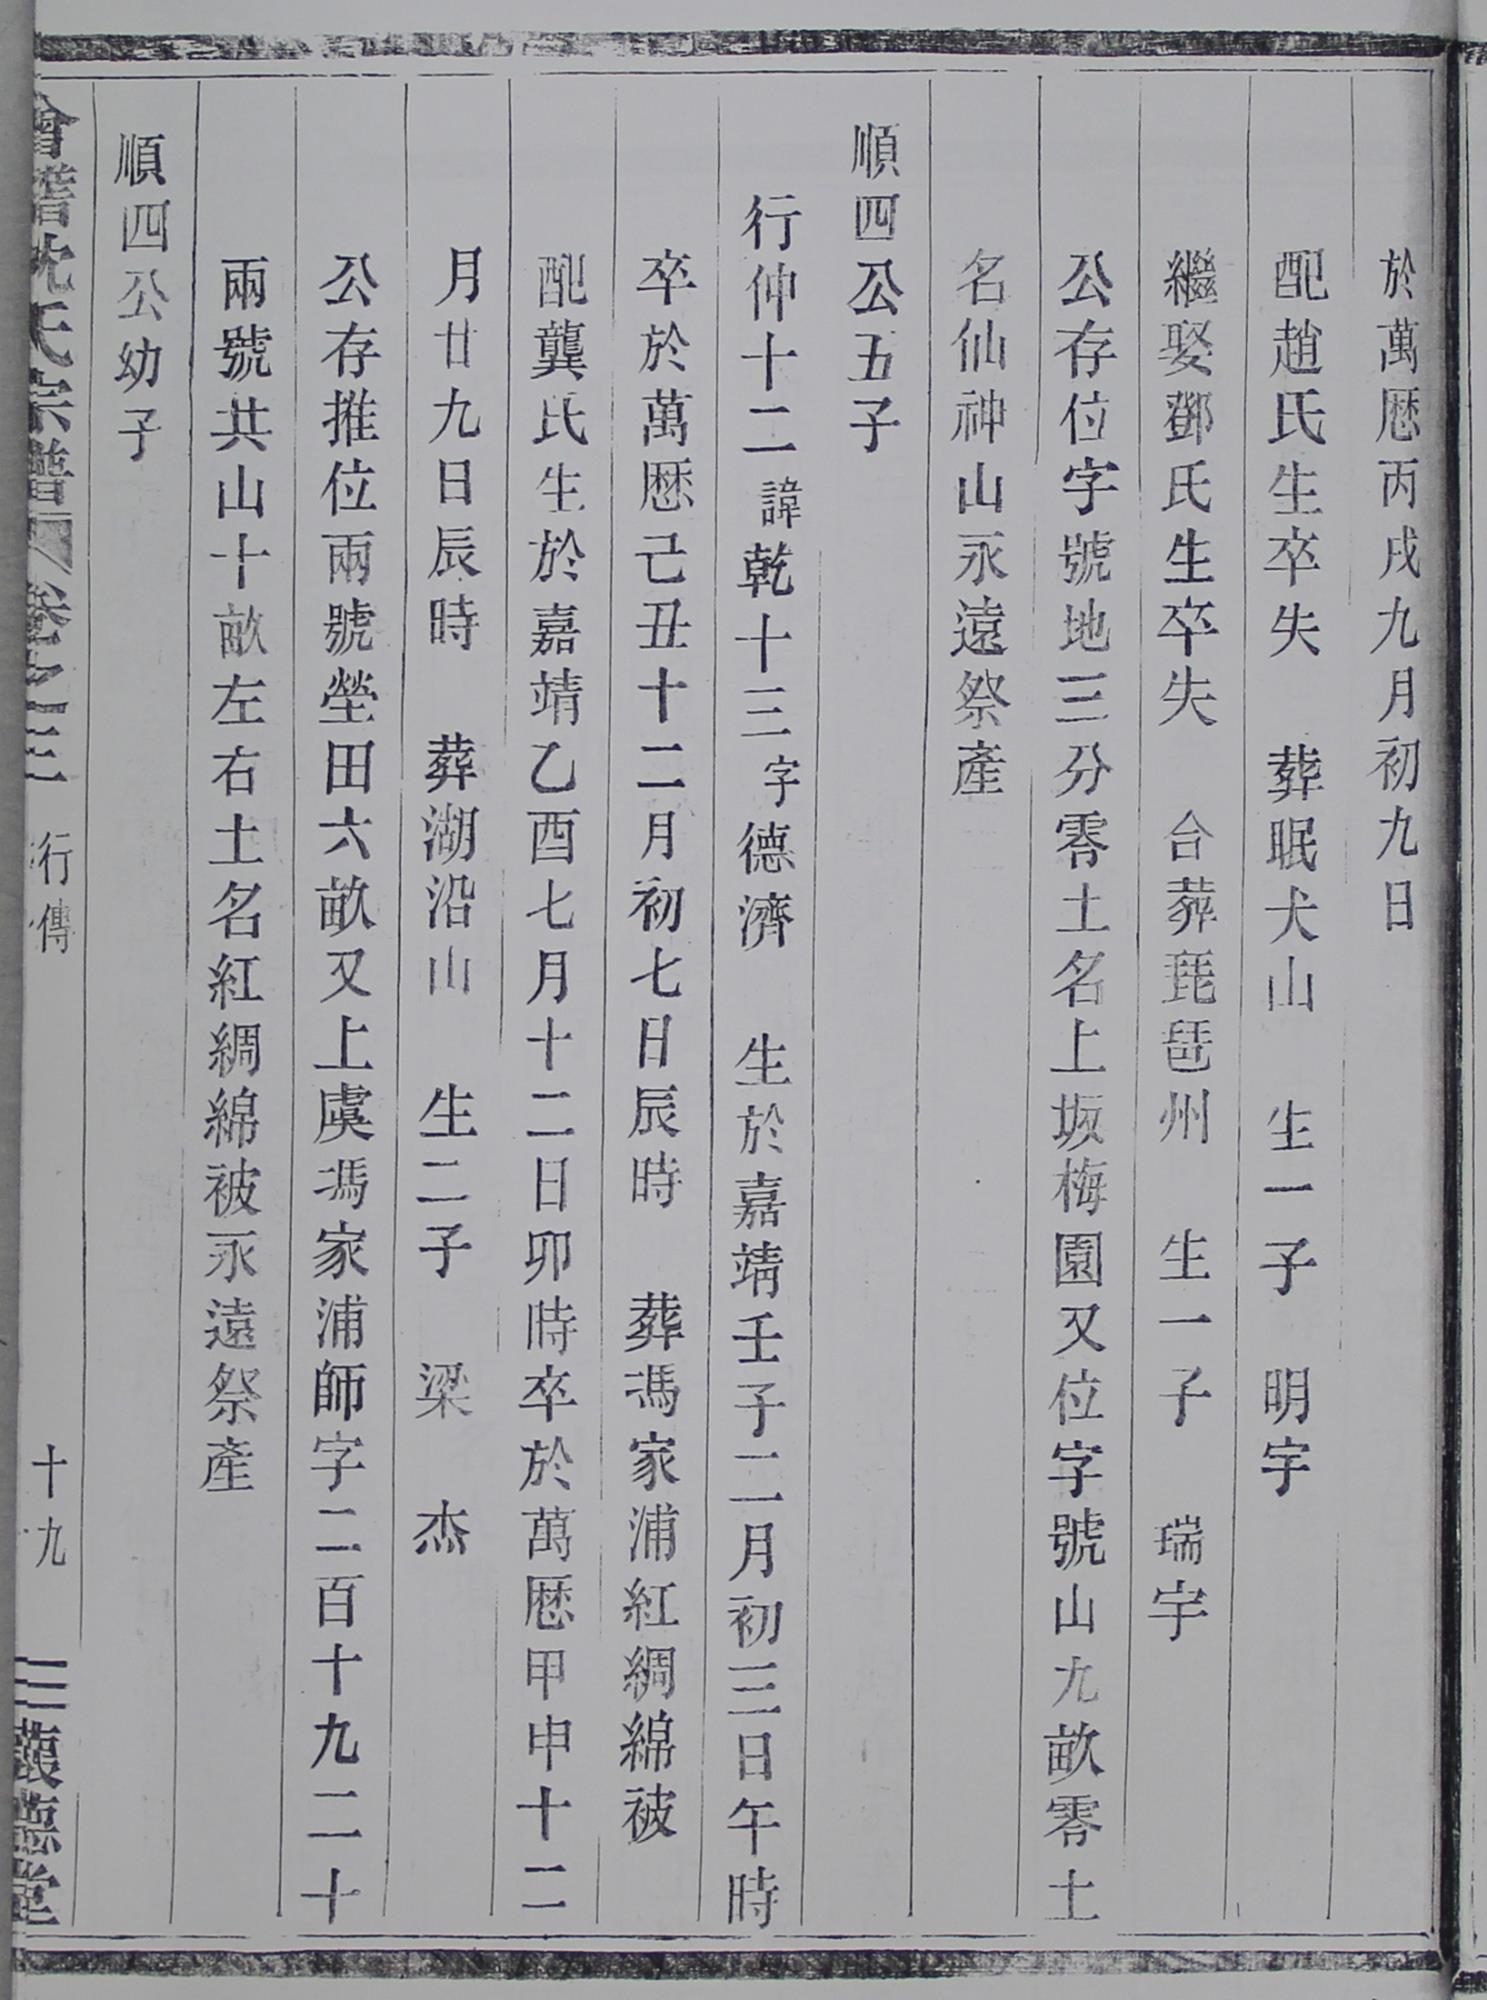 於萬厯丙戌九月初九日
配趙氏生卒失　葬眠犬山　生一子　明宇
繼娶鄧氏生卒失　合葬琵琶州　生一子　瑞宇
公存位字號地三分零土名上坂梅園又位字號山九畝零土
名仙神山永遠祭產
順四公五子
行仲十二諱乾十三字德濟　生於嘉靖壬子二月初三日午時
卒於萬厯己丑十二月初七日辰時　葬馮家浦紅綢綿被
配龔氏生於嘉靖乙酉七月十二日卯時卒於萬厯甲申十二
月廿九日辰時　葬湖沿山　生二子　梁　杰
公存推位兩號塋田六畝又上虞馮家浦師字二百十九二十
兩號共山十畝左右土名紅綢綿被永遠祭產
順四公幼子
會稽沈氏宗譜　卷之三　行傳　十九　德堂